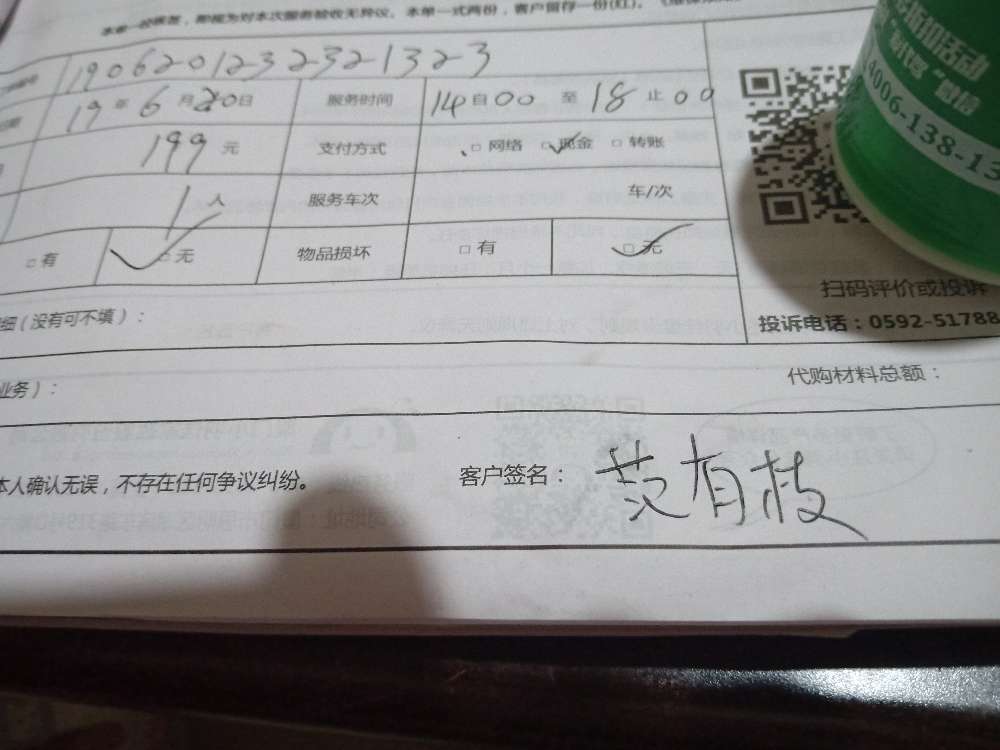 本单一经核签，即视为对本次服务验收无异议。本单一式两份，客户留存一份(红)。
190620123232132-3
19年6月20日 服务时间 14自00至18止00
199元 支付方式 □网络 □现金 □转账
1人 服务车次 车/次
□有 □无 物品损坏 □有 □无
4006-138-13
扫码评价或投诉
投诉电话：0592-51788
细(没有可不填)：
业务)：
代购材料总额：
本人确认无误，不存在任何争议纠纷。
客户签名：范有枝